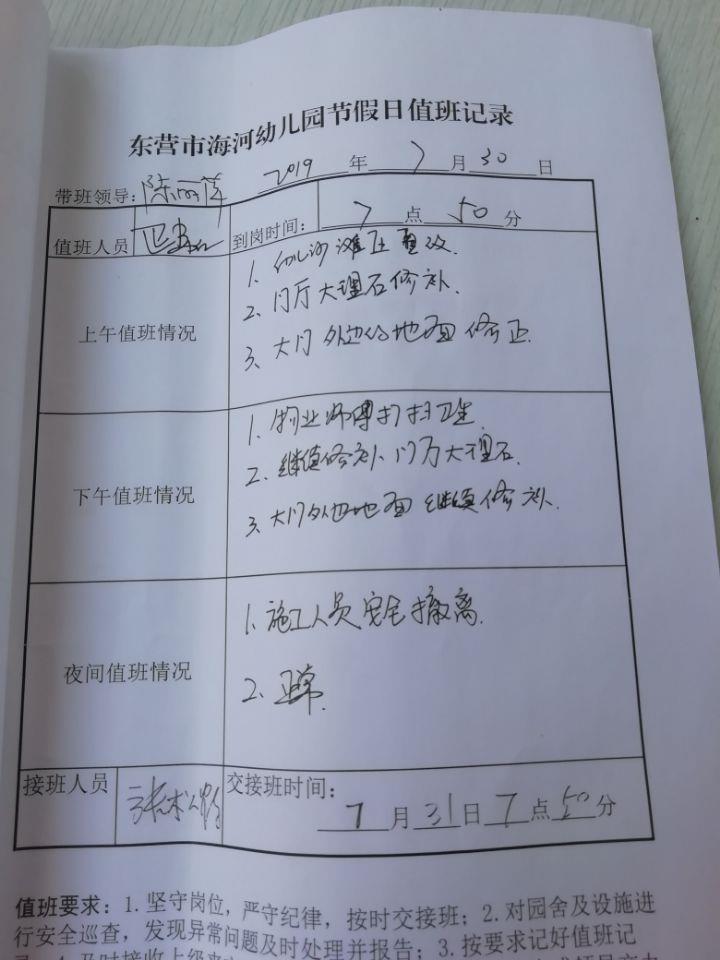 东营市海河幼儿园节假日值班记录
2019 年 7 月 30 日
带班领导：陈丽萍
值班人员 到岗时间： 7 点 50 分
上午值班情况
1. 幼儿沙滩 更改.
2. 门厅大理石修补.
3. 大门外边的地面修正.
下午值班情况
1. 物业师傅打扫卫生.
2. 继续修补门厅大理石.
3. 大门外边地面继续修补.
夜间值班情况
1. 施工人员安全撤离.
2. 正常.
接班人员 交接班时间：
7 月 31 日 7 点 50 分
值班要求：1. 坚守岗位，严守纪律，按时交接班；2. 对园舍及设施进
行安全巡查，发现异常问题及时处理并报告；3. 按要求记好值班记